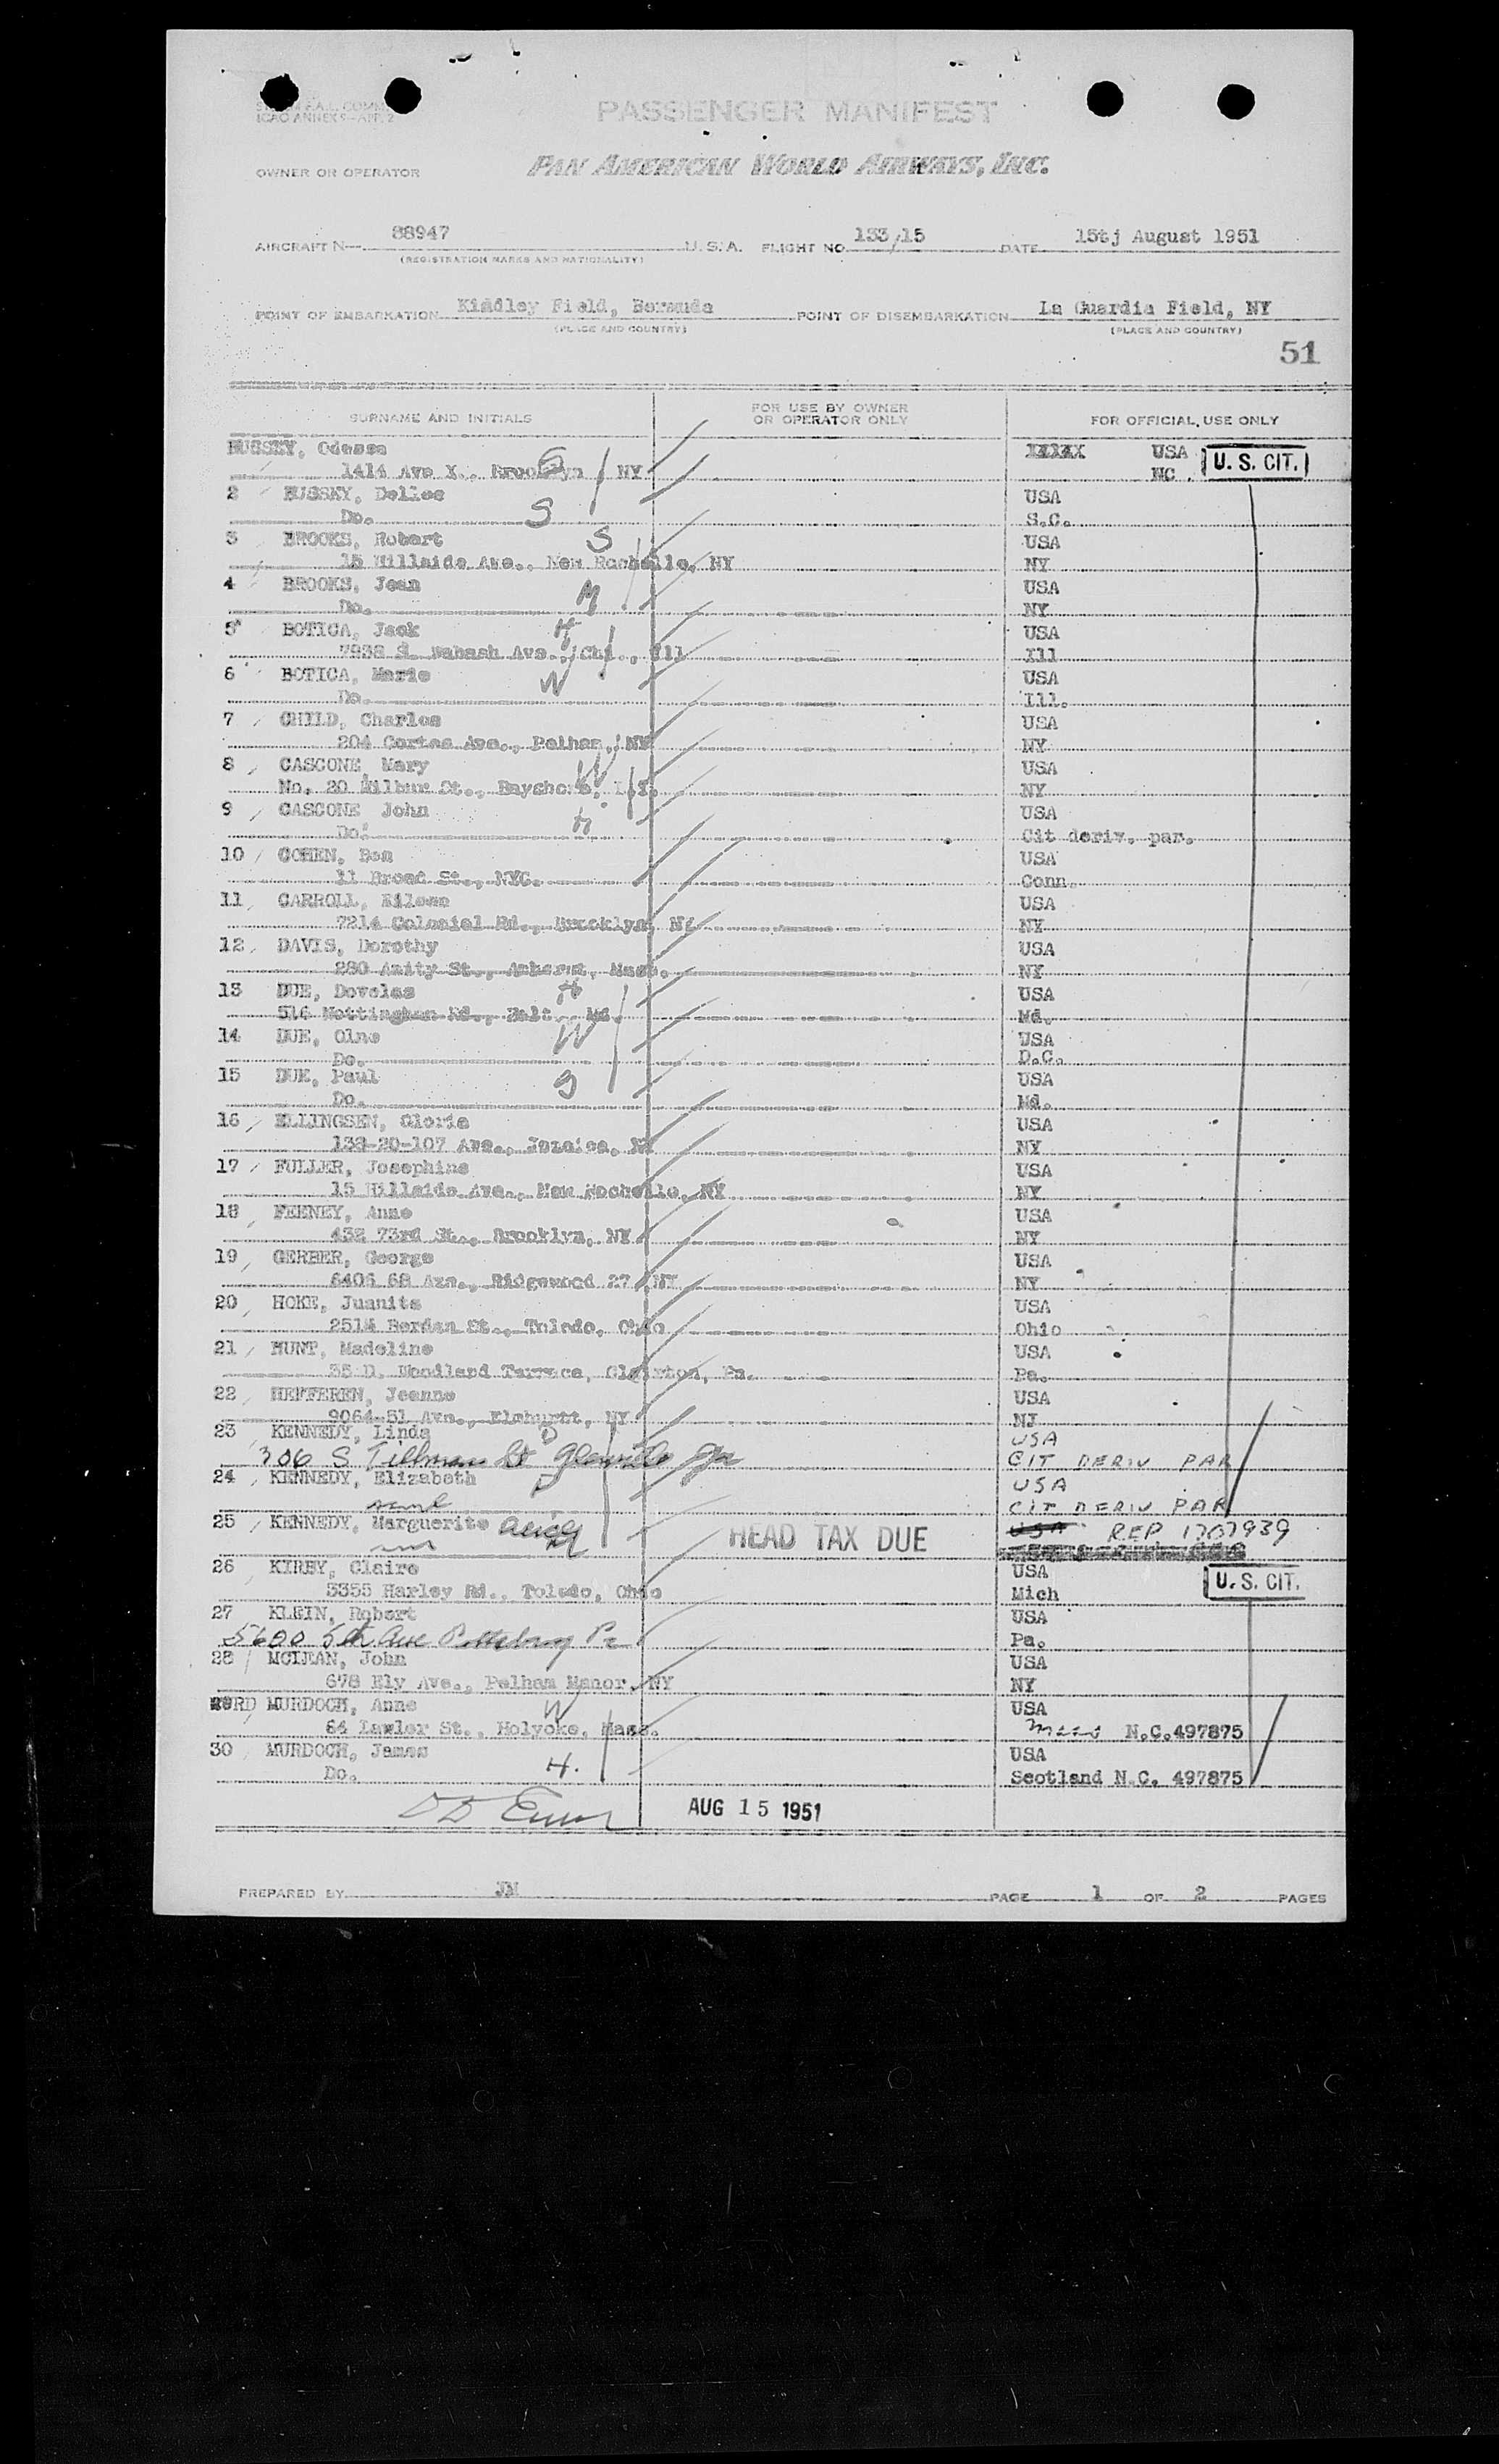 ICAO ANNEX 9—APP. 2
PASSENGER MANIFEST
OWNER OR OPERATOR PAN AMERICAN WORLD AIRWAYS, INC.
AIRCRAFT N— 88947 U.S.A. FLIGHT NO. 133/15 DATE 15tj August 1951
(REGISTRATION MARKS AND NATIONALITY)
POINT OF EMBARKATION Kindley Field, Bermuda POINT OF DISEMBARKATION La Guardia Field, NY
(PLACE AND COUNTRY) (PLACE AND COUNTRY)
51
SURNAME AND INITIALS FOR USE BY OWNER OR OPERATOR ONLY FOR OFFICIAL USE ONLY
HUSSEY, Odessa USA
1414 Ave X., Brooklyn NY NC U. S. CIT.
2 HUSSEY, USA
Do. S S.C.
3 BROOKS, Robert S USA
15 Hillside Ave., New Rochelle, NY NY
4 BROOKS, Jean M USA
Do. NY
5 BOTICA, Jack H USA
7938 S. Wabash Ave., Chi., Ill Ill
6 BOTICA, Marie W USA
Do. Ill.
7 CHILD, Charles USA
204 Cortes Ave., Pelham, NY NY
8 CASCONE, Mary W USA
No. 20 Wilbur St., Bayshore, L.I. NY
9 CASCONE John H USA
Do. Cit deriv. par.
10 COHEN, Ben USA
11 Broad St., NYC. Conn.
11 CARROLL, Eileen USA
7214 Colonial Rd., Brooklyn, NY NY
12 DAVIS, Dorothy USA
280 Amity St., Amherst, Mass. NY
13 DUE, Dovelas H USA
516 Nottingham Rd., Balt., Md. Md.
14 DUE, Oine W USA
Do. D.C.
15 DUE, Paul S USA
Do. Md.
16 ELLINGSEN, Gloria USA
132-20-107 Ave., Jamaica, NY NY
17 FULLER, Josephine USA
15 Hillside Ave., New Rochelle, NY NY
18 FEENEY, Anne USA
432 73rd St., Brooklyn, NY NY
19 GERBER, George USA
6406 68 Ave., Ridgewood 27 NY NY
20 HOKE, Juanita USA
2514 Berdan St., Toledo, Ohio Ohio
21 HUNT, Madeline USA
35 D. Woodland Terrace, Clairton, Pa. Pa.
22 HEFFEREN, Jeanne USA
9064-51 Ave., Elmhurst, NY NJ
23 KENNEDY, Linda D USA
306 S Tillman St Glennville Ga CIT DERIV PAR
24 KENNEDY, Elizabeth D USA
same CIT DERIV PAR
25 KENNEDY, Marguerite HEAD TAX DUE USA REP 1707939
26 KIRBY, Claire USA U. S. CIT.
3355 Harley Rd., Toledo, Ohio Mich
27 KLEIN, Robert USA
5600 5th Ave Pittsburg Pa Pa.
28 MCLEAN, John USA
678 Ely Ave., Pelham Manor, NY NY
RD MURDOCH, Anne W USA
64 Lawler St., Holyoke, Mass. N.C.497875
30 MURDOCH, James USA
Do. H. Scotland N.C. 497875
AUG 15 1951
PREPARED BY JM PAGE 1 OF 2 PAGES